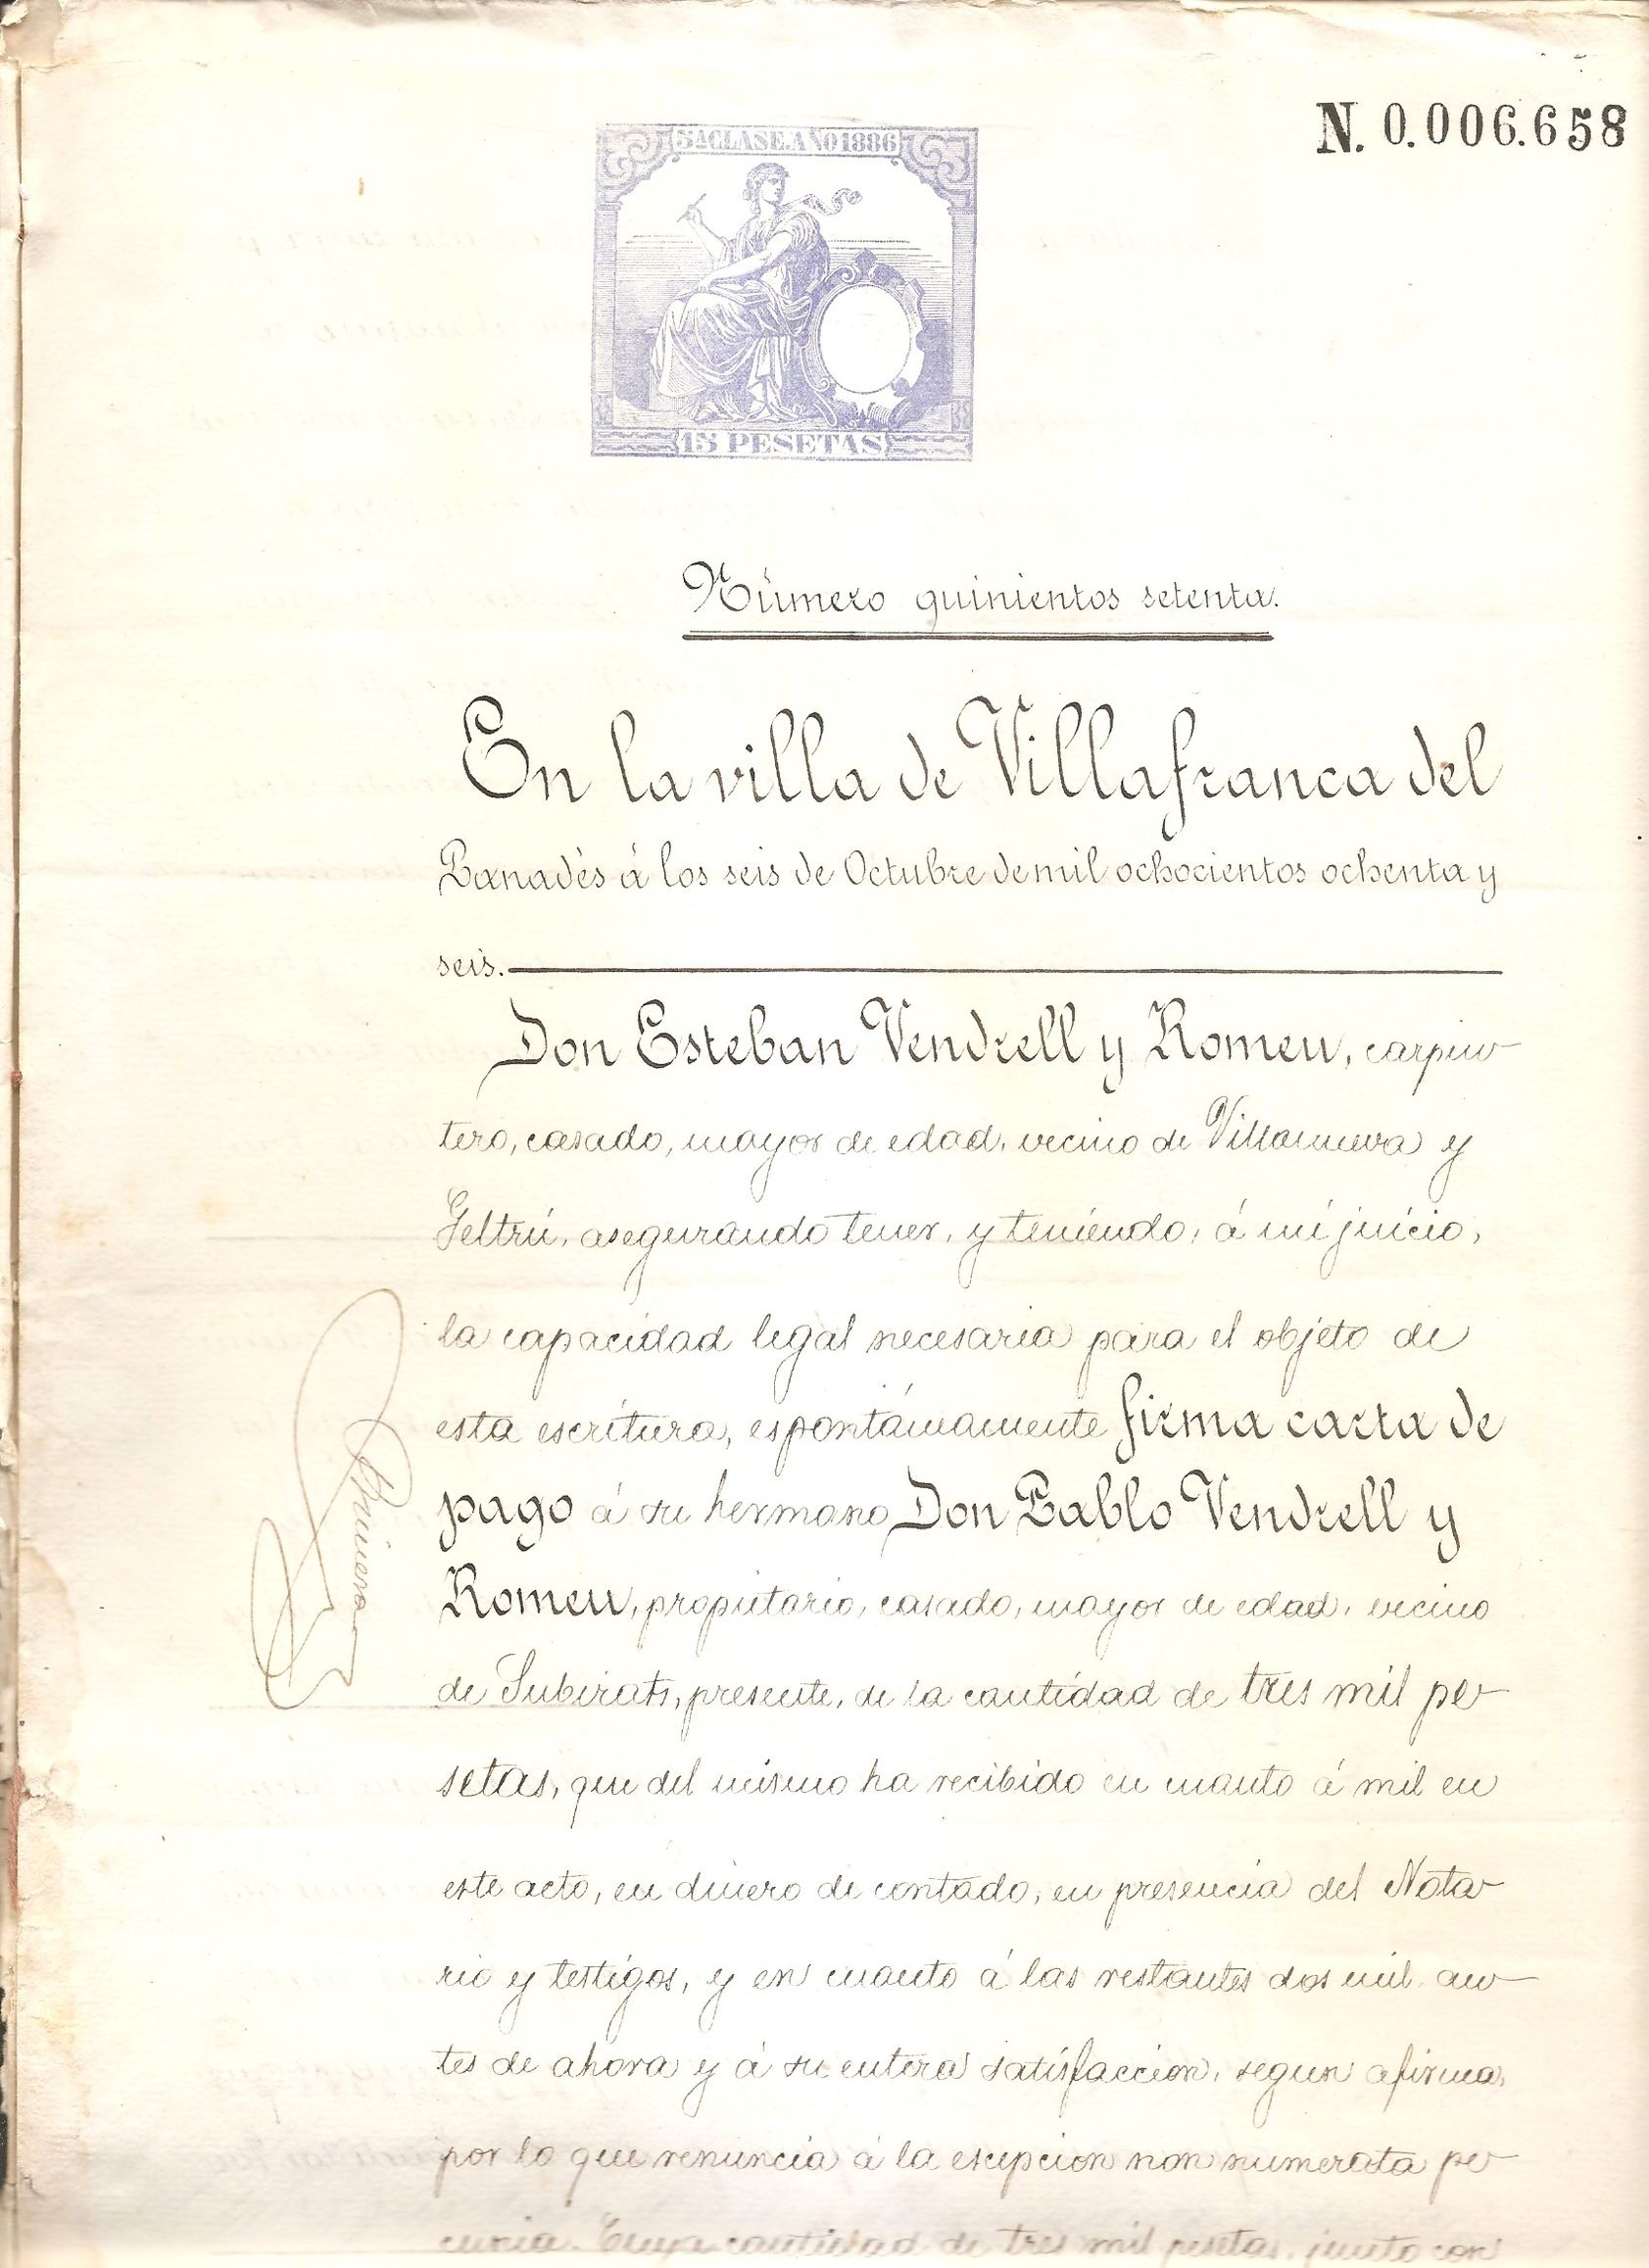 N. 0.006.658
5ª CLASE. AÑO 1886
15 PESETAS
Número quinientos setenta.
En la villa de Villafranca del
Panadés á los seis de Octubre de mil ochocientos ochenta y
seis.
Don Esteban Vendrell y Romeu, carpin-
tero, casado, mayor de edad, vecino de Villanueva y
Geltrú, asegurando tener, y teniendo, á mi juicio,
la capacidad legal necesaria para el objeto de
esta escritura, espontáneamente firma carta de
pago á su hermano Don Pablo Vendrell y
Romeu, propietario, casado, mayor de edad, vecino
de Subirats, presente, de la cantidad de tres mil pe-
setas, que del mismo ha recibido en cuanto á mil en
este acto, en dinero de contado, en presencia del Nota-
rio y testigos, y en cuanto á las restantes dos mil an-
tes de ahora y á su entera satisfaccion, segun afirma,
por lo que renuncia á la escepcion non numerata pe-
cunia. Cuya cantidad de tres mil pesetas, junto con